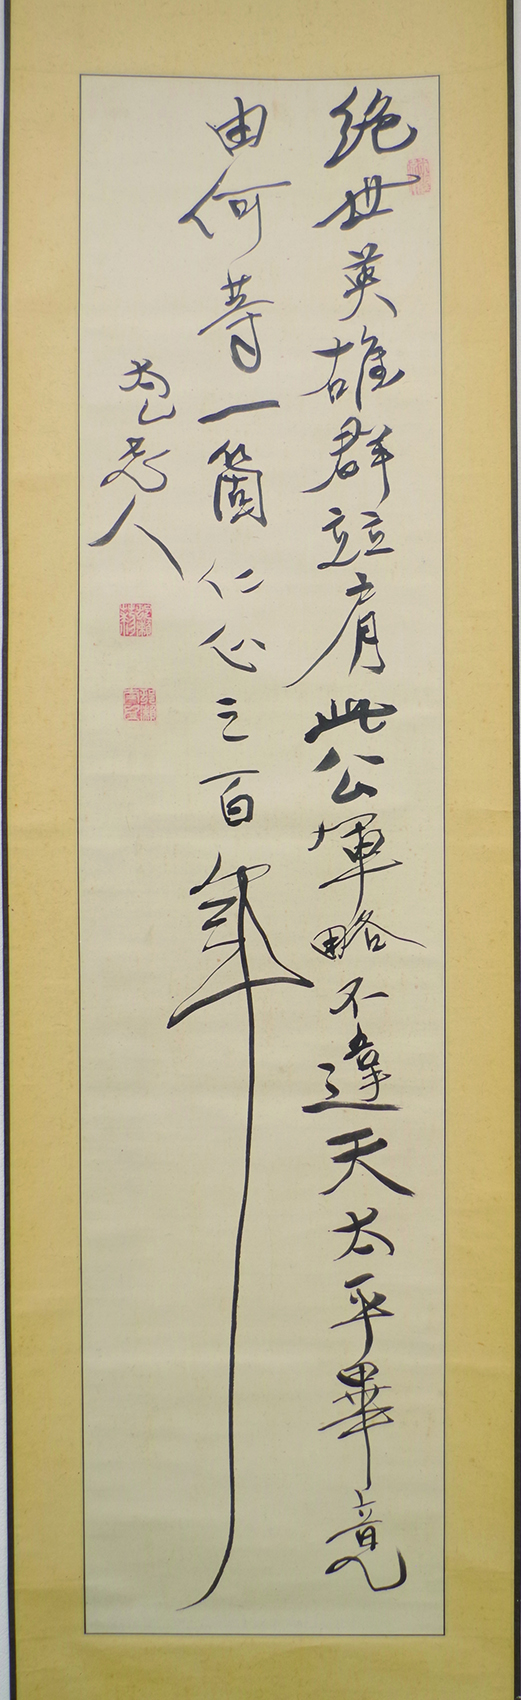 絶世英雄群竝肩此公軍略不違天太平畢竟
由何事一箇仁心三百年
老人